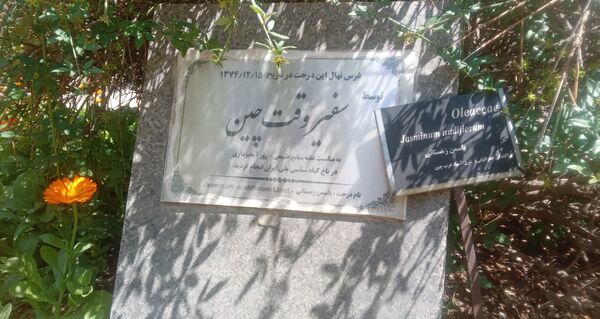 غرس نهال این درخت در تاریخ ۱۳۷۴/۱۲/۱۵
توسط
سفیر وقت چین
به مناسبت هفته منابع طبیعی - روز آبخیزداری
در باغ گیاه شناسی ملی ایران انجام گردید.
نام درخت: یاسمن زمستانی Jasminum nudiflorum Lindl.
Oleaceae
Jasminum nudiflorum
یاسمن زمستانی
غرب چین